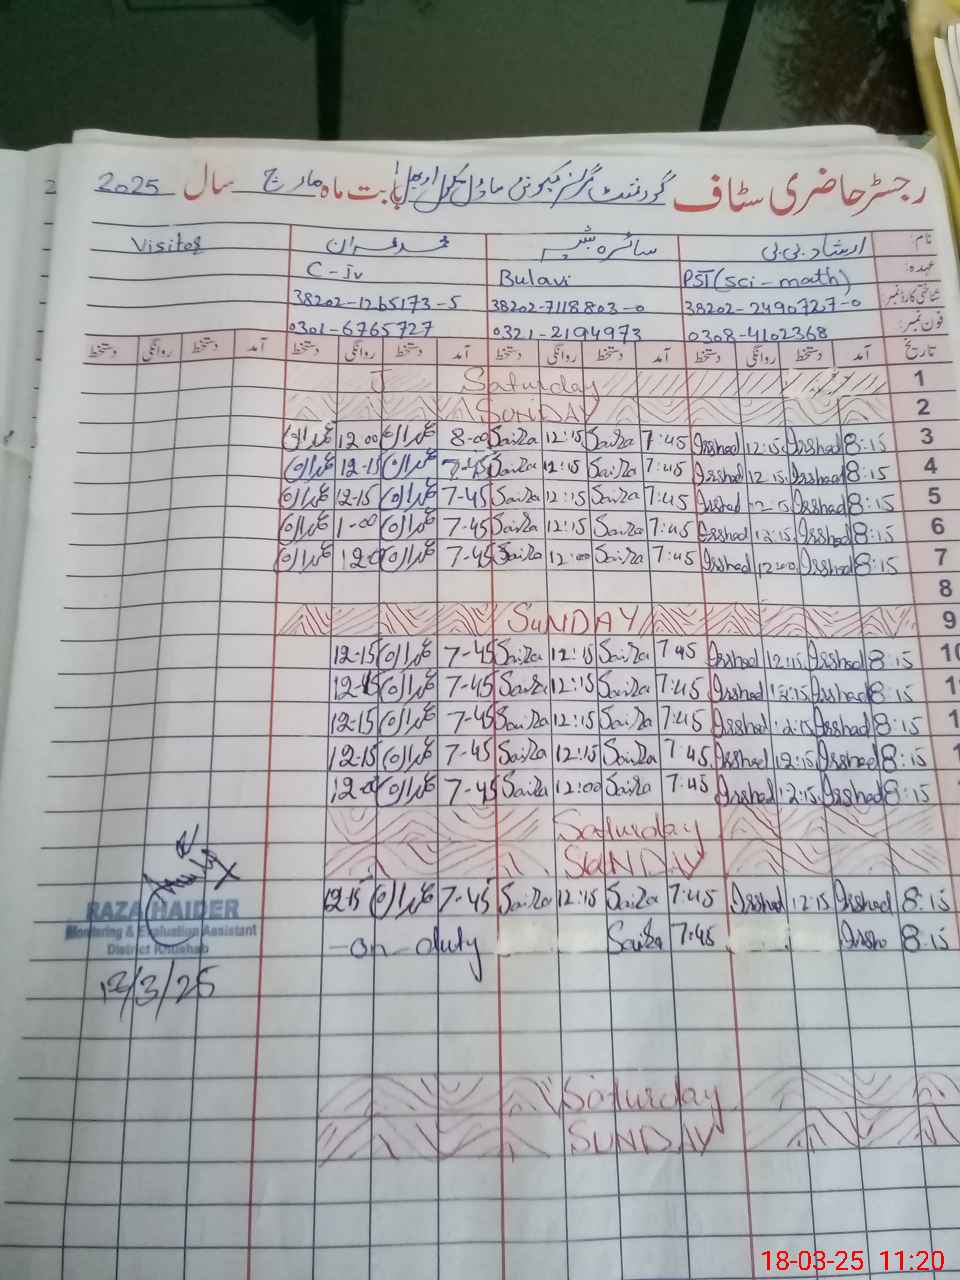 رجسٹر حاضری سٹاف گورنمنٹ گرلز کمیونٹی ماڈل سکول بابت ماہ مارچ سال 2025
نام: ارشاد بی بی سائرہ بشیر محمد عمران Visitor
عہدہ: PST(sci-math) Bulavi C-Iv
شناختی کارڈ نمبر: 38202-2490727-0 38202-7118803-0 38202-1265173-5
فون نمبر: 0308-4102368 0321-2194973 0301-6765727
تاریخ آمد دستخط روانگی دستخط آمد دستخط روانگی دستخط آمد دستخط روانگی دستخط آمد دستخط روانگی دستخط
1 Saturday
2 SUNDAY
3 8:15 Irshad 12:15 Irshad 7:45 Saira 12:15 Saira 8-00 عمران 12-00 عمران
4 8:15 Irshad 12:15 Irshad 7:45 Saira 12:15 Saira 7-45 عمران 12-15 عمران
5 8:15 Irshad Irshad 7:45 Saira 12:15 Saira 7-45 عمران 12-15 عمران
6 8:15 Irshad 12:15 Irshad 7:45 Saira 12:15 Saira 7-45 عمران 1-00 عمران
7 8:15 Irshad 12:00 Irshad 7:45 Saira 12:00 Saira 7-45 عمران عمران
8
9 SUNDAY
10 8:15 Irshad 12:15 Irshad 7:45 Saira 12:15 Saira 7-45 عمران 12-15
8:15 Irshad 12:15 Irshad 7:45 Saira 12:15 Saira 7-45 عمران
8:15 Irshad 12:15 Irshad 7:45 Saira 12:15 Saira 7-45 عمران 12-15
8:15 Irshad 12:15 Irshad 7:45 Saira 12:15 Saira 7-45 عمران 12-15
8:15 Irshad 12:15 Irshad 7:45 Saira 12:00 Saira 7-45 عمران
Saturday
SUNDAY
8:15 Irshad 12:15 Irshad 7:45 Saira 12:15 Saira 7-45 عمران 12-15
8:15 7:45 Saira -on-duty
RAZA HAIDER
Monitoring & Evaluation Assistant
District Khushab
12/3/25
Saturday
SUNDAY
18-03-25 11:20